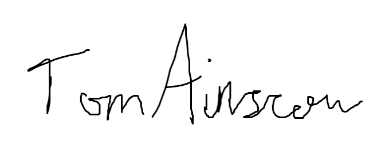 Tom Ainscow